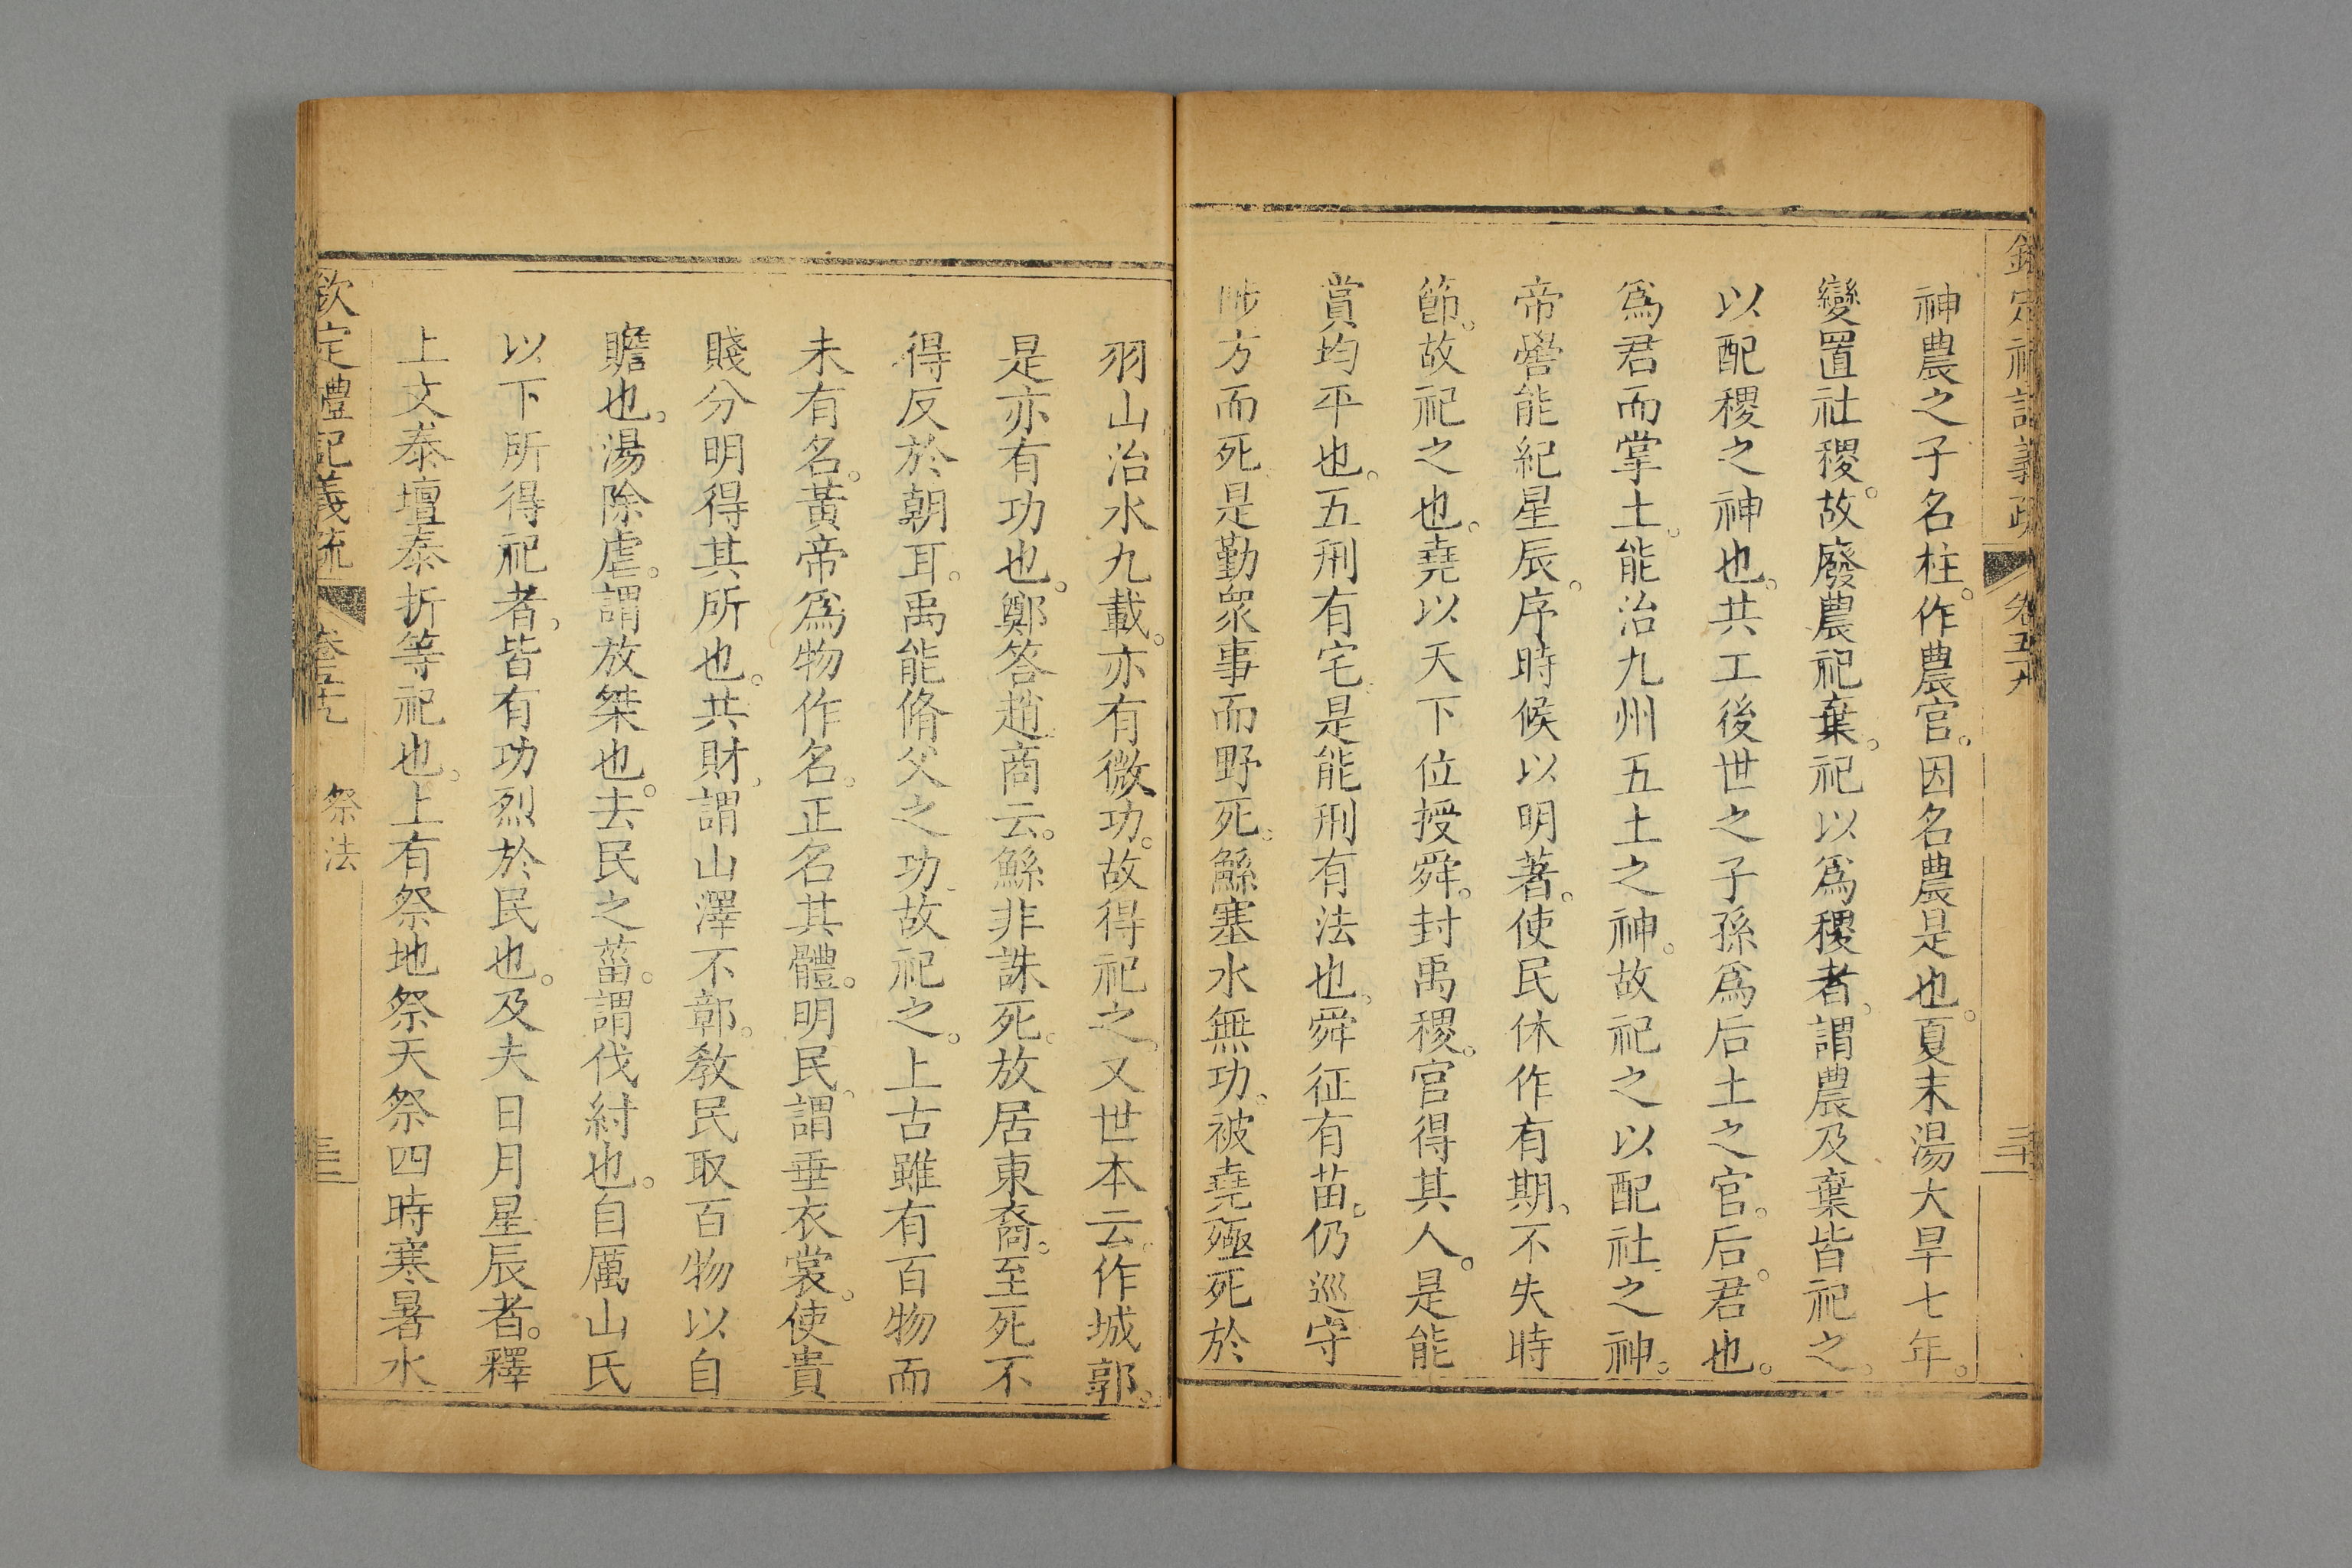 神農之子名柱。作農官。因名農是也。夏末湯大旱七年。
變置社稷。故廢農祀棄。祀以爲稷者。謂農及棄皆祀之。
以配稷之神也。共工後世之子孫爲后土之官。后。君也。
爲君而掌土。能治九州五土之神。故祀之以配社之神。
帝嚳能紀星辰。序時候以明著。使民休作有期、不失時
節。故祀之也。堯以天下位授舜。封禹稷。官得其人。是能
賞均平也。五刑有宅、是能刑有法也。舜征有苗。仍巡守
陟方而死、是勤衆事而野死。鯀塞水無功。被堯殛死於
羽山治水九載。亦有微功。故得祀之。又世本云。作城郭。
是亦有功也。鄭答趙商云。鯀非誅死。放居東裔。至死不
得反於朝耳。禹能脩父之功、故祀之。上古雖有百物而
未有名。黃帝爲物作名。正名其體。明民、謂垂衣裳。使貴
賤分明得其所也。共財、謂山澤不鄣。敎民取百物以自
贍也。湯除虐。謂放桀也。去民之菑。謂伐紂也。自厲山氏
以下所得祀者、皆有功烈於民也。及夫日月星辰者。釋
上文泰壇泰折等祀也。上有祭地祭天祭四時寒暑水
欽定禮記義疏 祭法